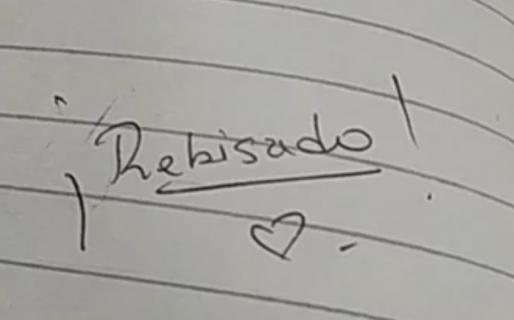 ¡Rebisado!
♡.